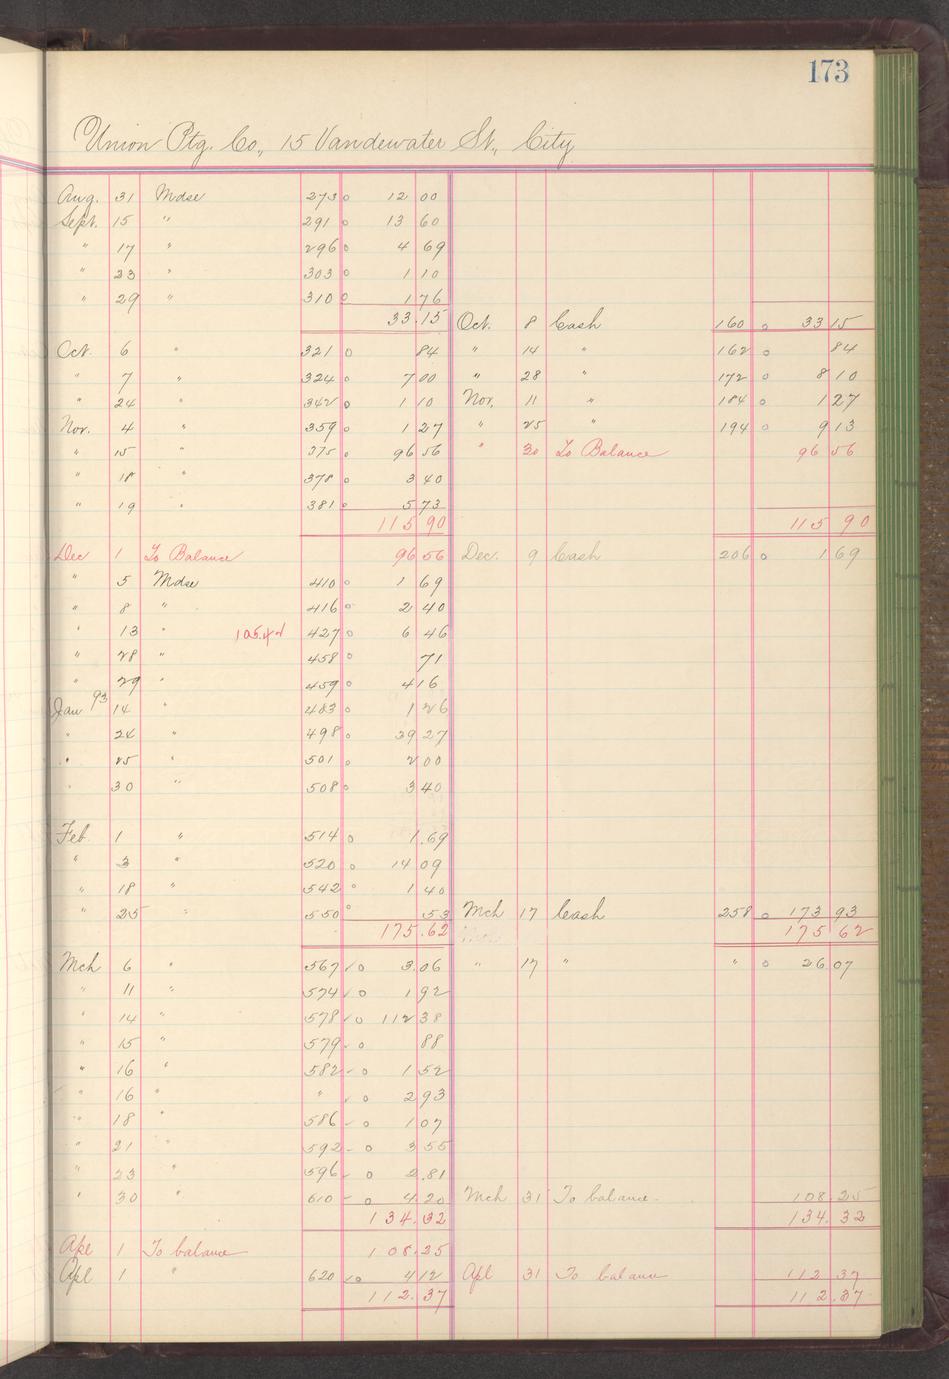 173
Union Ptg. Co., 15 Vandewater St., City
Aug. 31 Mdse 273 o 12 00
Sept. 15 " 291 o 13 60
" 17 " 296 o 4 69
" 23 " 303 o 1 10
" 29 " 310 o 1 76
33.15 Oct. 8 Cash 160 o 33 15
Oct. 6 " 321 o 84 " 14 " 162 o 84
" 7 " 324 o 7 00 " 28 " 172 o 8 10
" 24 " 342 o 1 10 Nov. 11 " 184 o 1 27
Nov. 4 " 359 o 1 27 " 25 " 194 o 9 13
" 15 " 375 o 96 56 " 30 To Balance 96 56
" 18 " 378 o 3 40
" 19 " 381 o 5 73
115 90 115 90
Dec 1 To Balance 96 56 Dec. 9 Cash 206 o 1 69
" 5 Mdse 410 o 1 69
" 8 " 416 o 2 40
" 13 " 105.42 427 o 6 46
" 28 " 458 o 71
" 29 " 459 o 4 16
Jan 93 14 " 483 o 1 26
" 24 " 498 o 39 27
" 25 501 o 2 00
" 30 " 508 o 3 40
Feb. 1 " 514 o 1.69
" 3 " 520 o 14 09
" 18 " 542 o 1 40
" 25 " 550 o 53 Mch 17 Cash 258 o 173 93
175.62 175 62
Mch 6 " 567 ✓ o 3.06 " 17 " " o 26 07
" 11 " 574 ✓ o 1 92
" 14 " 578 ✓ o 112 38
" 15 " 579 ✓ o 88
" 16 " 582 ✓ o 1 52
" 16 " " ✓ o 2 93
" 18 " 586 ✓ o 1 07
" 21 " 592 ✓ o 3 55
" 23 " 596 ✓ o 2.81
" 30 " 610 ✓ o 4.20 Mch 31 To balance. 108.25
134.32 134.32
Apl 1 To balance 108.25
Apl 1 " 620 ✓ o 4 12 Apl 31 To balance 112 37
112.37 112.37